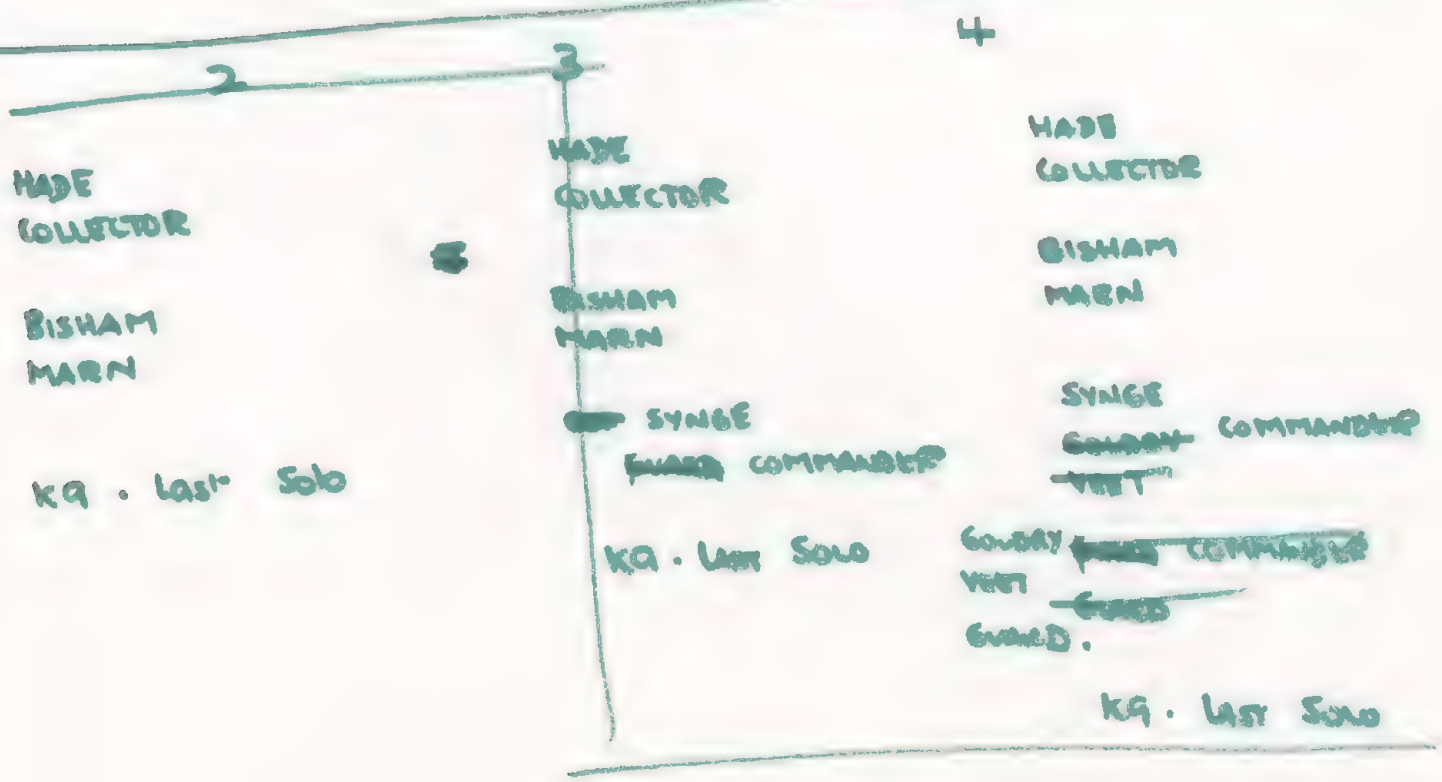 2
HADE
COLLECTOR
BISHAM
MARN
K9 . Last Solo
3
HADE
COLLECTOR
BISHAM
MARN
SYNGE
COMMANDER
K9 . Last Solo
4
HADE
COLLECTOR
BISHAM
MARN
SYNGE
GOUDRY COMMANDER
VEET
GOUDRY COMMANDER
VEET GUARD
GUARD.
K9 . Last Solo